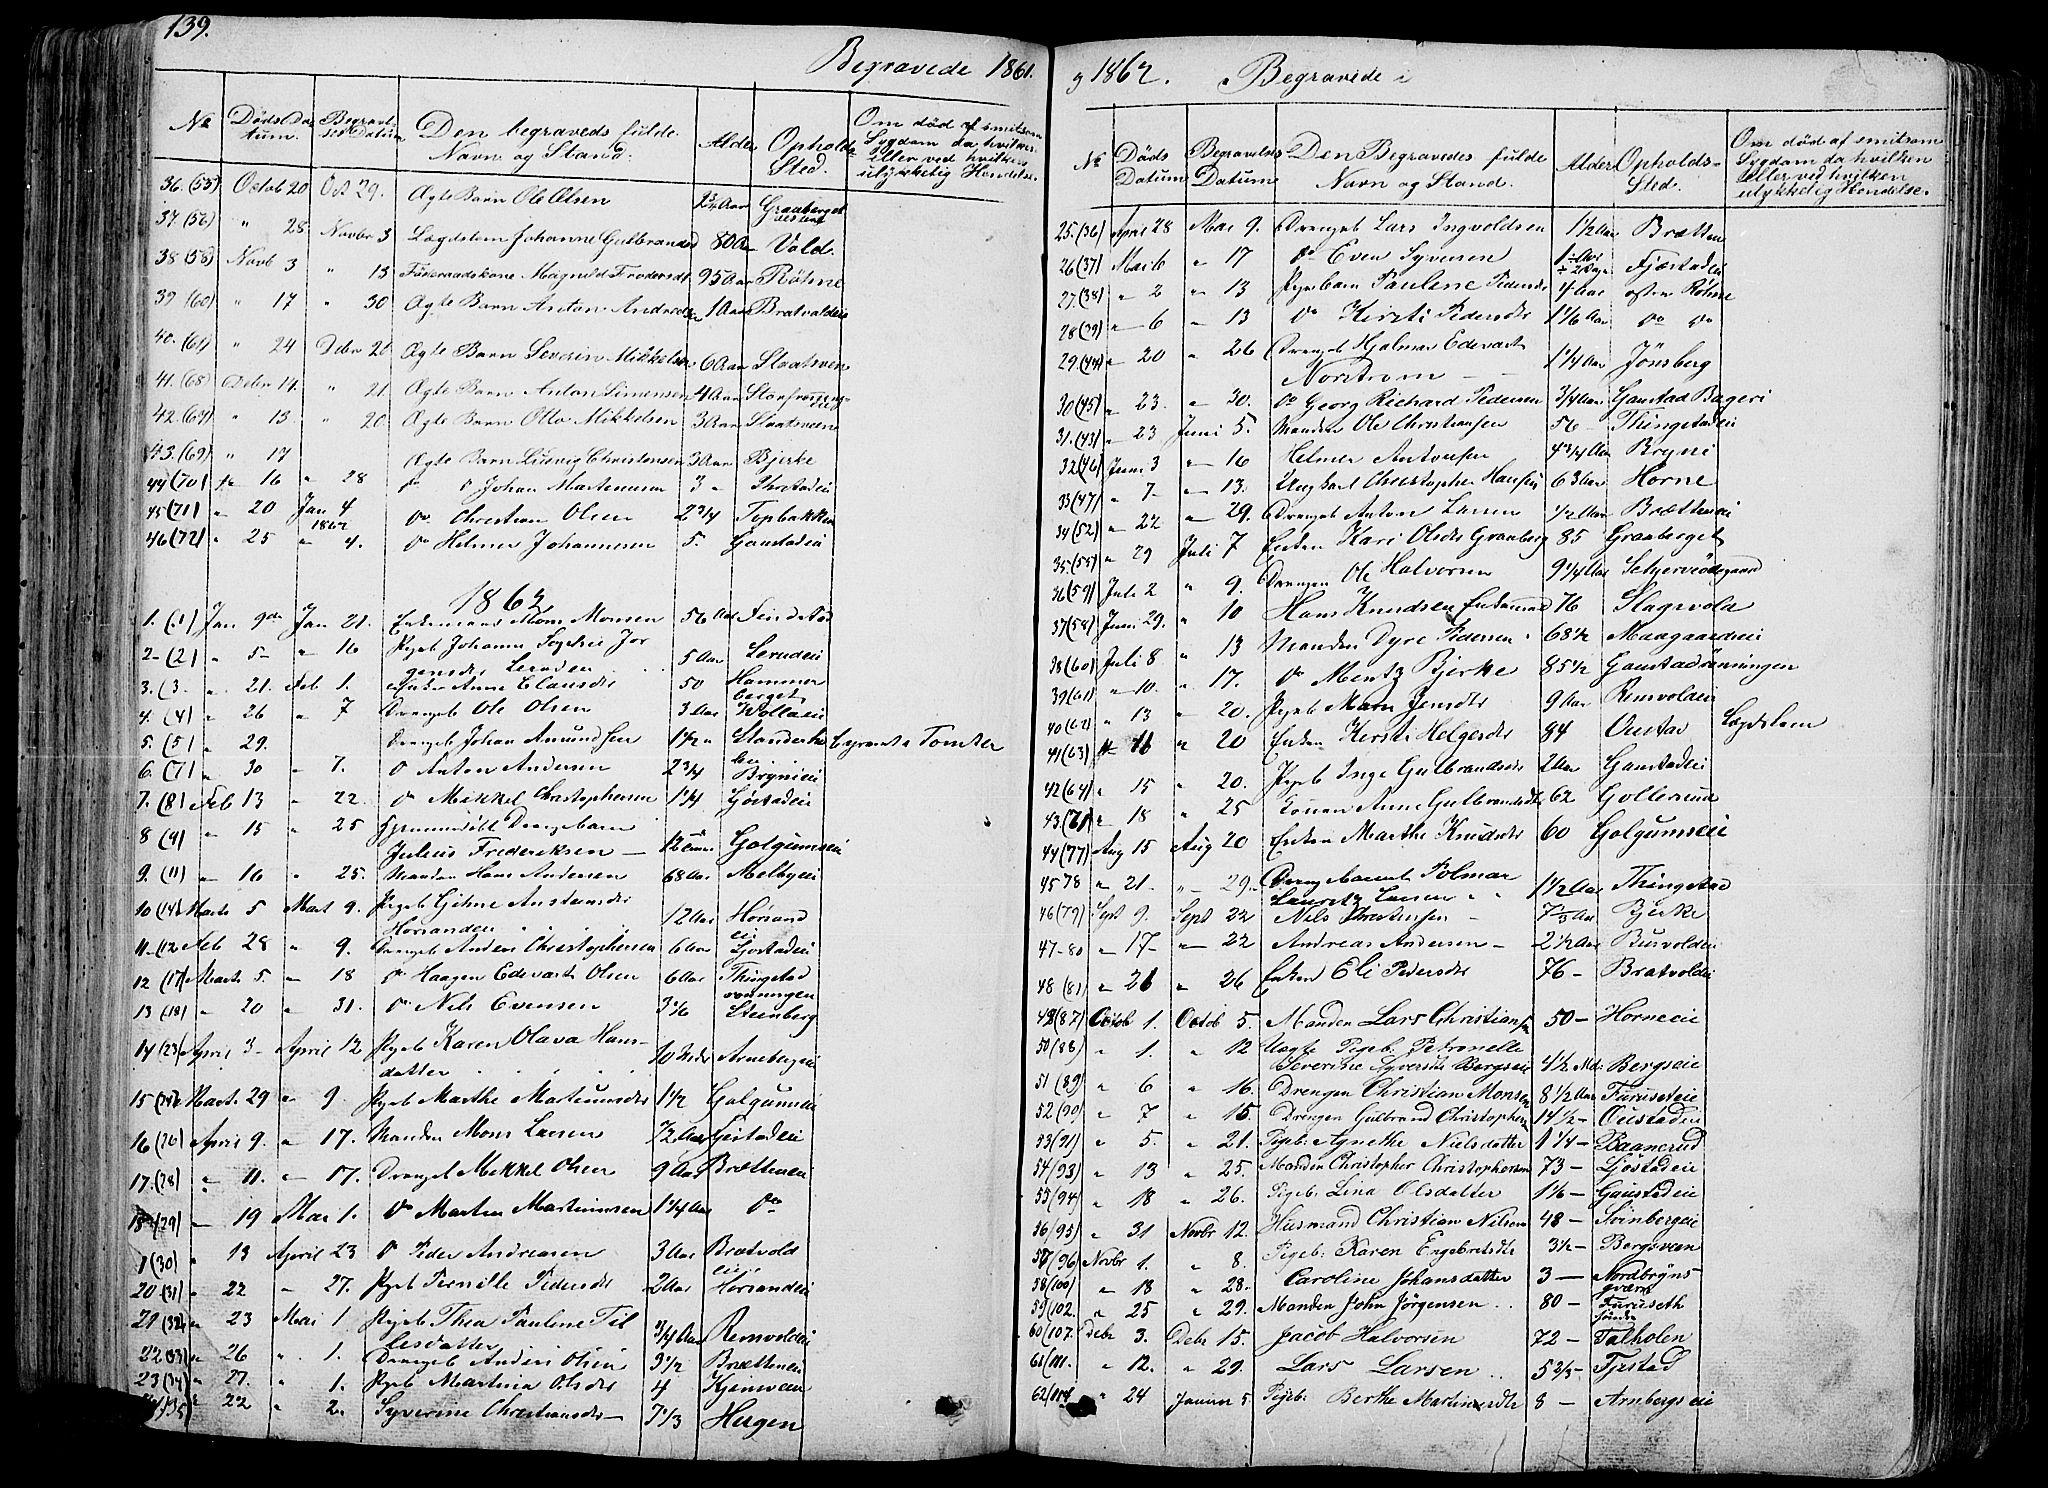 139.
Begravede 1861.
No Døds Da- tum. Begravel- ses Datum Den begraveds fulde Navn og Stand. Alder Opholds Sted. Om død af smitsom Sygdom da hvilken eller ved hvilken ulykkelig Hendelse.
36. (55) Octob 20 Oct 29. Ægte Barn Ole Olsen 2 3/4 Aar Graaberget
37. (56) " 28 Novbr 3 Lægdslem Johanne Gulbrandsd 80 Aar Vold.
38 (58) Novb 3 " 13 Føderaadskone Magnild Frodersdt 95 Aar Røhne
39 (60) " 17 " 30 Ægte Barn Anton Andreasen 1 Aar Bratvoldeie
40. (61) " 24 Debr 26 Ægte Barn Severin Mikkelsen 6 Aar Slaatsveen
41. (68) Debr 14 " 21 Ægte Barn Anton Simensen 4 Aar
42. (67) " 13 " 20 Ægte Barn Otto Mikkelsen 3 Aar Slaatsveen
43. (69) " 17 Ægte Barn Ludvig Christensen 3 Aar Bjerke
44 (70) " 16 " 28 do do Johan Martinusen 3 "
45 (71) " 20 Jan 4 1862 do Christian Olsen 2 3/4 Topbakken
46 (72) " 25 " 4. do Helmer Johannesen 5. Gaustadeie
1862
1. (1) Jan 9de Jan 21. Enkemand Mons Monsen 56 Aar Findstad
2 - (2) " 5 - " 16 Pigeb Johanne Sophie Jor
gensdtr Leruden 5 Aar Lerudeie
3. (3. " 21. Feb 1. Enken Anne Clausdtr 50 Hammer
berget
4. (4) " 26 " 7 Drengeb Ole Olsen 3 Aar Wollaeie
5. (5) " 29. Drengeb Johan Amundsen 1 1/2 "
6. (7) " 30 " 7. do Anton Andersen 2 3/4 Brynieie
7. (8) Feb 13 " 22. do Mikkel Christophersen 1 1/4 Gjøstadeie
8 (9) " 15 " 25 Hjemmedøbt Drengebarn
Julius Frederiksen 12 Golgumseie
9. (11) " 16 " 25. Manden Hans Andersen 68 Aar Melbyeie
10 (14) Marts 5 Mart 9. Pigeb Gihne Anstensdtr
Horsanden 12 Aar Horsand
eie
11 - (12 Feb 28 " 9. Drengeb Anders Christophersen 6 Aar Ljøstadeie
12 (17) Marts 5 " 18 do Haagen Edevart Olsen 6 Aar Thingstad
rønningen
13 (18) " 20 " 31. do Nils Evensen 3 1/6 Steenberg
14 (23) April 3 - April 12 Pigeb Karen Olava Hans-
datter 10 Arnebergeie
15 (24) Mart. 29 " 9. Pigeb Marthe Martinusdtr 1 1/2 Golgumseie
16 (26) April 9. " 17. Manden Mons Larsen Ljøstadeie
17. (28) " 11. " 17. Drengeb Mikkel Olsen 9 Aar Brætheneie
18 (29) " 19 Mai 1. do Martin Martinusen 1 1/4 Aar do
(30) " 13 April 23 do Peder Andreasen 3 Aar Brætvold
eie
20 (31) " 22 " 27. Pigeb Pernille Pedersdt 2 Aar Horsandeie
21 (32) " 23 Mai 1. Pigeb Thea Pauline Til
lesdatter 3/4 Aar Remvoldeie
22 (33) " 26 " 1. Drengeb Anders Olsen 3 1/2 Bretteneie
23 (34) " 27. " 1. Pigeb Martina Olsdtr 4
" 22 " 2. Syverine Christiansdtr 7 1/3 Haugen
1862. Begravede i
No Døds Datum Begravelses Datum Den Begravedes fulde Navn og Stand. Alder Opholds- Sted. Om død af smitsom Sygdom da hvilken eller ved hvilken ulykkelig Hendelse.
25. (36) April 28 Mai 9. Drengeb Lars Ingvoldsen 1 1/2 Aar Brætten
26 (37) Mai 6 " 17 do Even Syversen Fjøstadeie
27. (38) " 2 " 13 Pigebarn Pauline Pedersdtr 4 Aar østre Røhne
28 (39) " 6 " 13 do Kirsti Pedersdtr 1 1/6 Aar do do
29. (44) " 20 " 26 Drengeb Hjalmar Edevart
Norstrøm - - 1 1/4 Aar Jønsberg
30 (45) " 23. " 30. do Georg Richard Pedersen 3/4 Aar Gaustad Bageri
31. (43) " 23 Juni 5. Manden Ole Christiansen 56 - Thingstadeie
32 (46) Juni 3 " 16 Helmer Antonsen 4 3/4 Aar Bryni
33 (47) " 7 - " 13. Ungkarl Christopher Hansen 63 Aar Horne
34 (52) " 22 " 29. Drengeb Anton Larsen 1/2 Aar Brætteneie
35. (55) " 29 Juli 7 Enken Kari Olsdtr Graaberg 85 Graaberget
36 (59) Juli 2 " 9. Drengen Ole Halvorsen 9 1/4 Aar
37 (58) Juni 29. " 10 Hans Knudsen Enkemand 76 Slagsvold
38 (60) Juli 8 " 13 Manden Dyre Pedersen 68 1/2 Maagaardseie
39 (61) " 10. " 17. do Mentz Bjerke 85 1/2 Gaustadrønningen
40 (62) " 13 " 20. Pigeb Maren Jensdtr 9 Aar Remvoldeie
41 (63) " 16 " 20 Enken Kersti Helgesdtr 84 Oustad Lægdslem
42 (64) " 15 " 20. Pigeb Inge Gulbrandsdtr 2 Aar Gaustadeie
43. (71) " 18 " 25 Konen Anne Gulbrandsdt 62 Gollerud
44 (77) Aug 15 Aug 20 Enken Marthe Knudsdtr 60 Golgumseie
45 78 " 21. " 29. Drengebarnet Polmar
Lauritz Larsen 1 1/2 Aar Thingstad
46 (79) Sept 9. Sept 22 Nils 7 1/3 Aar Bjerke
47 - 80 " 17 - " 22 Andreas Andersen - 2 1/2 Aar Busvoldeie
48 (81) " 21 " 26 Enken Eli Pedersdtr 76 - Bratvoldeie
49 (87) Octob 1. Octob 5. Manden Lars Christiansen 50 - Horneeie
50 (88) " 1. " 12 Uægte Pigeb. Petronelle
Severine Syversdt Bergseie 4 1/2 Md. Bergseie
51 (89) " 6 " 16. Drengen Christian Monsen 8 1/2 Aar Furuseteie
52 (90) " 7 " 15 Drengen Gulbrand Christophersen 14 1/2 - Oustadeie
53 (91) " 5. " 21. Pigeb. Agnethe Nielsdatter 1 1/4 - Baanerud
54 (93) " 13 " 25. Manden Christopher Christophersen 73 - Ljøstadeie
55 (94) " 18 " 26. Pigeb. Lina Olsdatter 1 1/6 - Gaustadeie
56 (95) " 31 Novbr 12. Husmand Christian Nilsen 48 - Svinbergeie
57 (96 Novbr 1. " 8. Pigeb: Karen Engebretsdtr 3 1/2 - Bergsveen
58 (100) " 18 " 28. Caroline Johansdatter 3 - Nordbryns
59 (102. " 25 " 29. Manden John Jörgensen .. 80 - Furuseth
søndre
60 (107. Debr 3. Debr 15. Jacob Halvorsen 72 - Talholen
61 (111. " 12. " 29. Lars Larsen .. 52 2/3 - Tjøstad
62 (114 " 24 Januar 5 Pigeb: Berthe Martinusdtr 8 - Arnbergseie